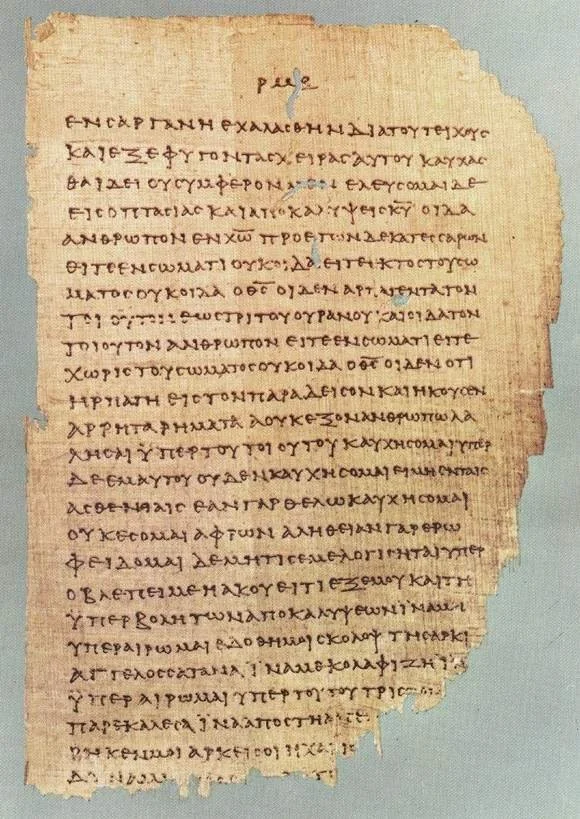 ρμε
ΕΝ ϹΑΡΓΑΝΗ ΕΧΑΛΑϹΘΗΝ ΔΙΑ ΤΟΥ ΤΕΙΧΟΥϹ
ΚΑΙ ΕΞΕΦΥΓΟΝ ΤΑϹ ΧΕΙΡΑϹ ΑΥΤΟΥ ΚΑΥΧΑϹ
ΘΑΙ ΔΕΙ ΟΥ ϹΥΜΦΕΡΟΝ ΜΕΝ ΕΛΕΥϹΟΜΑΙ ΔΕ
ΕΙϹ ΟΠΤΑϹΙΑϹ ΚΑΙ ΑΠΟΚΑΛΥΨΕΙϹ Κ̅Υ̅ ΟΙΔΑ
ΑΝΘΡΩΠΟΝ ΕΝ Χ̅Ω̅ ΠΡΟ ΕΤΩΝ ΔΕΚΑΤΕϹϹΑΡΩΝ
ΕΙΤΕ ΕΝ ϹΩΜΑΤΙ ΟΥΚ ΟΙΔΑ ΕΙΤΕ ΕΚΤΟϹ ΤΟΥ ϹΩ
ΜΑΤΟϹ ΟΥΚ ΟΙΔΑ Ο Θ̅Ϲ̅ ΟΙΔΕΝ ΑΡΠΑΓΕΝΤΑ ΤΟΝ
ΤΟΙΟΥΤΟΝ ΕΩϹ ΤΡΙΤΟΥ ΟΥΡΑΝΟΥ ΚΑΙ ΟΙΔΑ ΤΟΝ
ΤΟΙΟΥΤΟΝ ΑΝΘΡΩΠΟΝ ΕΙΤΕ ΕΝ ϹΩΜΑΤΙ ΕΙΤΕ
ΧΩΡΙϹ ΤΟΥ ϹΩΜΑΤΟϹ ΟΥΚ ΟΙΔΑ Ο Θ̅Ϲ̅ ΟΙΔΕΝ ΟΤΙ
ΗΡΠΑΓΗ ΕΙϹ ΤΟΝ ΠΑΡΑΔΕΙϹΟΝ ΚΑΙ ΗΚΟΥϹΕΝ
ΑΡΡΗΤΑ ΡΗΜΑΤΑ Α ΟΥΚ ΕΞΟΝ ΑΝΘΡΩΠΩ ΛΑ
ΛΗϹΑΙ ΫΠΕΡ ΤΟΥ ΤΟΙΟΥΤΟΥ ΚΑΥΧΗϹΟΜΑΙ ΥΠΕΡ
ΔΕ ΕΜΑΥΤΟΥ ΟΥΔΕΝ ΚΑΥΧΗϹΟΜΑΙ ΕΙ ΜΗ ΕΝ ΤΑΙϹ
ΑϹΘΕΝΕΙΑΙϹ ΕΑΝ ΓΑΡ ΘΕΛΩ ΚΑΥΧΗϹΟΜΑΙ
ΟΥΚ ΕϹΟΜΑΙ ΑΦΡΩΝ ΑΛΗΘΕΙΑΝ ΓΑΡ ΕΡΩ
ΦΕΙΔΟΜΑΙ ΔΕ ΜΗ ΤΙϹ ΕΜΕ ΛΟΓΙϹΗΤΑΙ ΥΠΕΡ
Ο ΒΛΕΠΕΙ ΜΕ Η ΑΚΟΥΕΙ ΤΙ ΕΞ ΕΜΟΥ ΚΑΙ ΤΗ
ΫΠΕΡΒΟΛΗ ΤΩΝ ΑΠΟΚΑΛΥΨΕΩΝ ΪΝΑ ΜΗ
ΥΠΕΡΑΙΡΩΜΑΙ ΕΔΟΘΗ ΜΟΙ ϹΚΟΛΟΨ ΤΗ ϹΑΡΚΙ
ΑΓΓΕΛΟϹ ϹΑΤΑΝΑ ΪΝΑ ΜΕ ΚΟΛΑΦΙΖΗ ΪΝΑ
ΫΠΕΡΑΙΡΩΜΑΙ ΥΠΕΡ ΤΟΥΤΟΥ ΤΡΙϹ
ΠΑΡΕΚΑΛΕϹΑ ΪΝΑ ΑΠΟϹΤΗ Α
ΡΗΚΕΝ ΜΟΙ ΑΡΚΕΙ ϹΟΙ Η ΧΑΡΙϹ